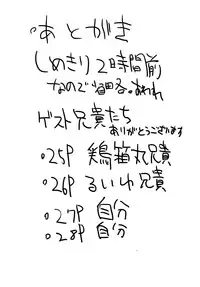 あとがき
しめきり2時間前
なので省略。あわれ
ゲスト兄貴たち
ありがとうございます
.25P 鶏箱丸兄貴
.26P るいひ兄貴
.27P 自分
.28P 自分